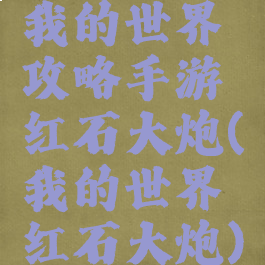 我的世界
攻略手游
红石大炮(
我的世界
红石大炮)